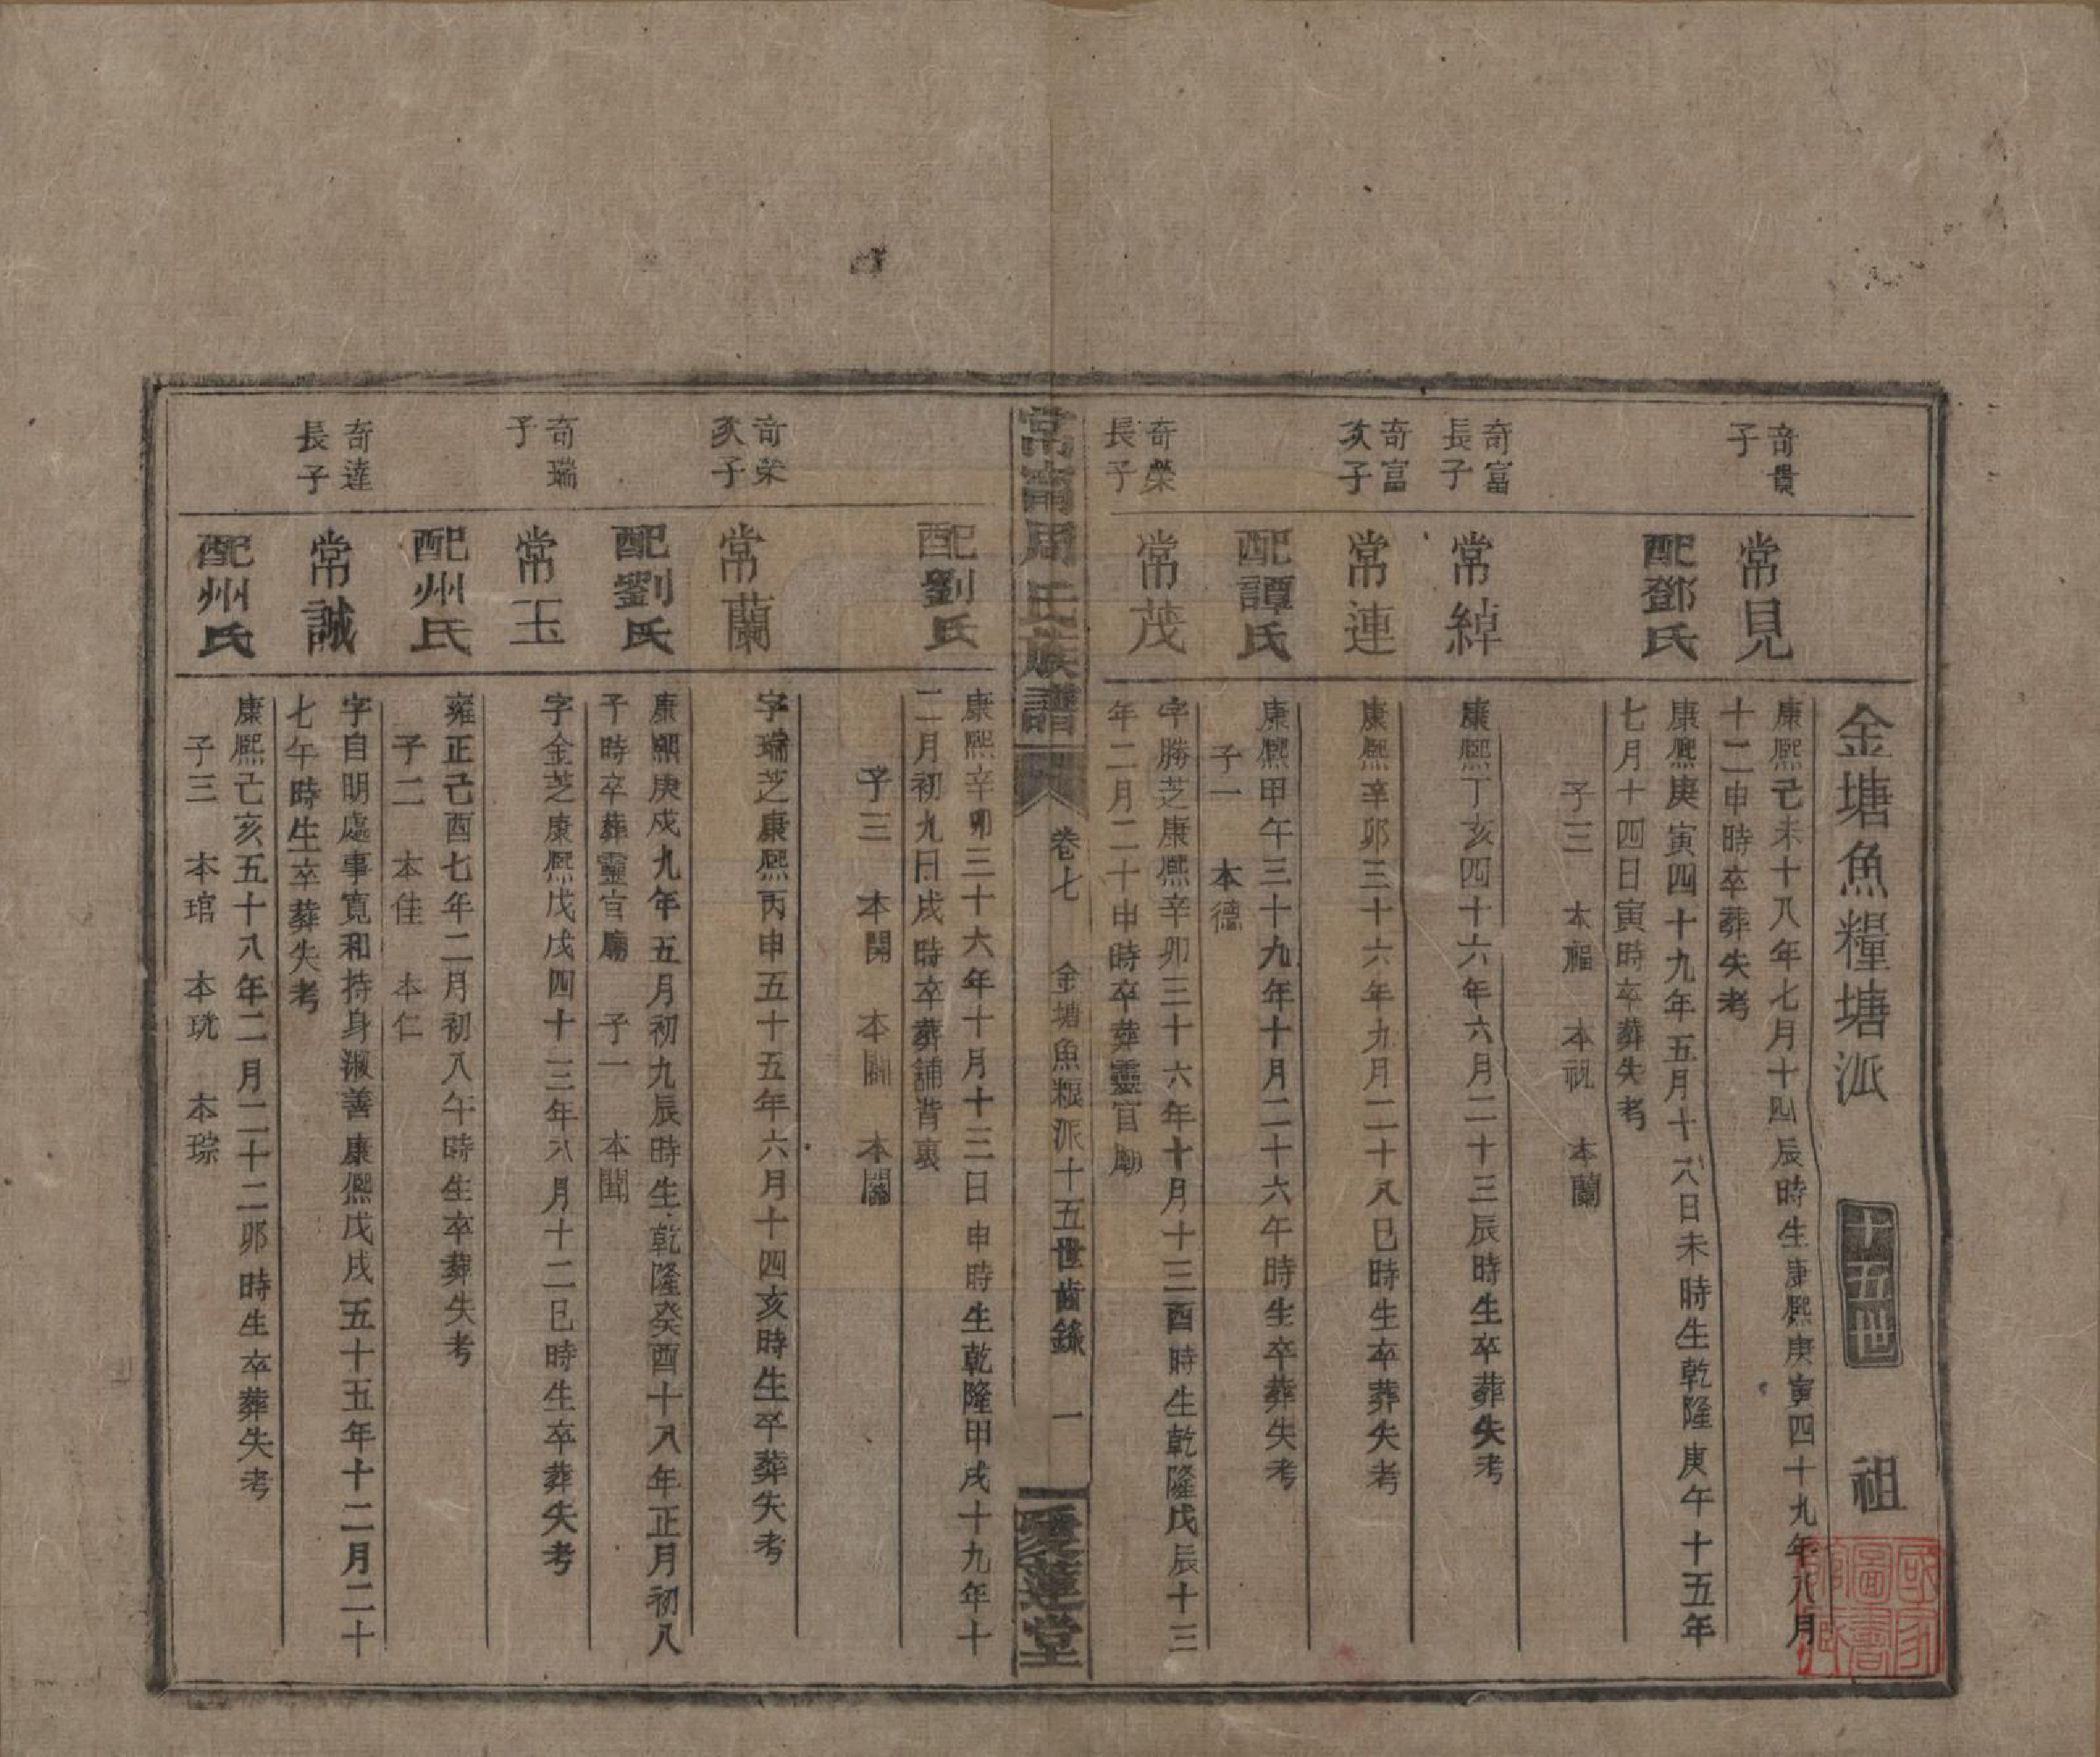 金塘魚糧塘派　十五世　祖
奇貴
子
常見
康熙己未十八年七月十四辰時生康熙庚寅四十九年八月
十二申時卒葬失考
配鄧氏
康熙庚寅四十九年五月十八日未時生乾隆庚午十五年
七月十四日寅時卒葬失考
子三　本福　本祝　本蘭
奇富
長子
常綽
康熙丁亥四十六年六月二十三辰時生卒葬失考
奇富
次子
常連
康熙辛卯三十六年九月二十八巳時生卒葬失考
配譚氏
康熙甲午三十九年十月二十六午時生卒葬失考
子一　本德
奇榮
長子
常茂
字勝芝康熙辛卯三十六年十月十三酉時生乾隆戊辰十三
年二月二十申時卒葬靈官廟
常甯周氏族譜
卷七　金塘魚粮派十五世齒錄　一
愛蓮堂
配劉氏
康熙辛卯三十六年十月十三日申時生乾隆甲戌十九年十
二月初九日戌時卒葬舖背裏
子三　本開　本關　本闊
奇荣
次子
常蘭
字瑞芝康熙丙申五十五年六月十四亥時生卒葬失考
配劉氏
康熙庚戌九年五月初九辰時生乾隆癸酉十八年正月初八
子時卒葬靈官廟　子一　本聞
奇瑞
子
常玉
字金芝康熙戊戌四十三年八月十二巳時生卒葬失考
配州氏
雍正己酉七年二月初八午時生卒葬失考
子二　本佳　本仁
奇達
長子
常誠
字自明處事寬和持身淑善康熙戊戌五十五年十二月二十
七午時生卒葬失考
配州氏
康熙己亥五十八年二月二十二卯時生卒葬失考
子三　本琯　本珖　本琮